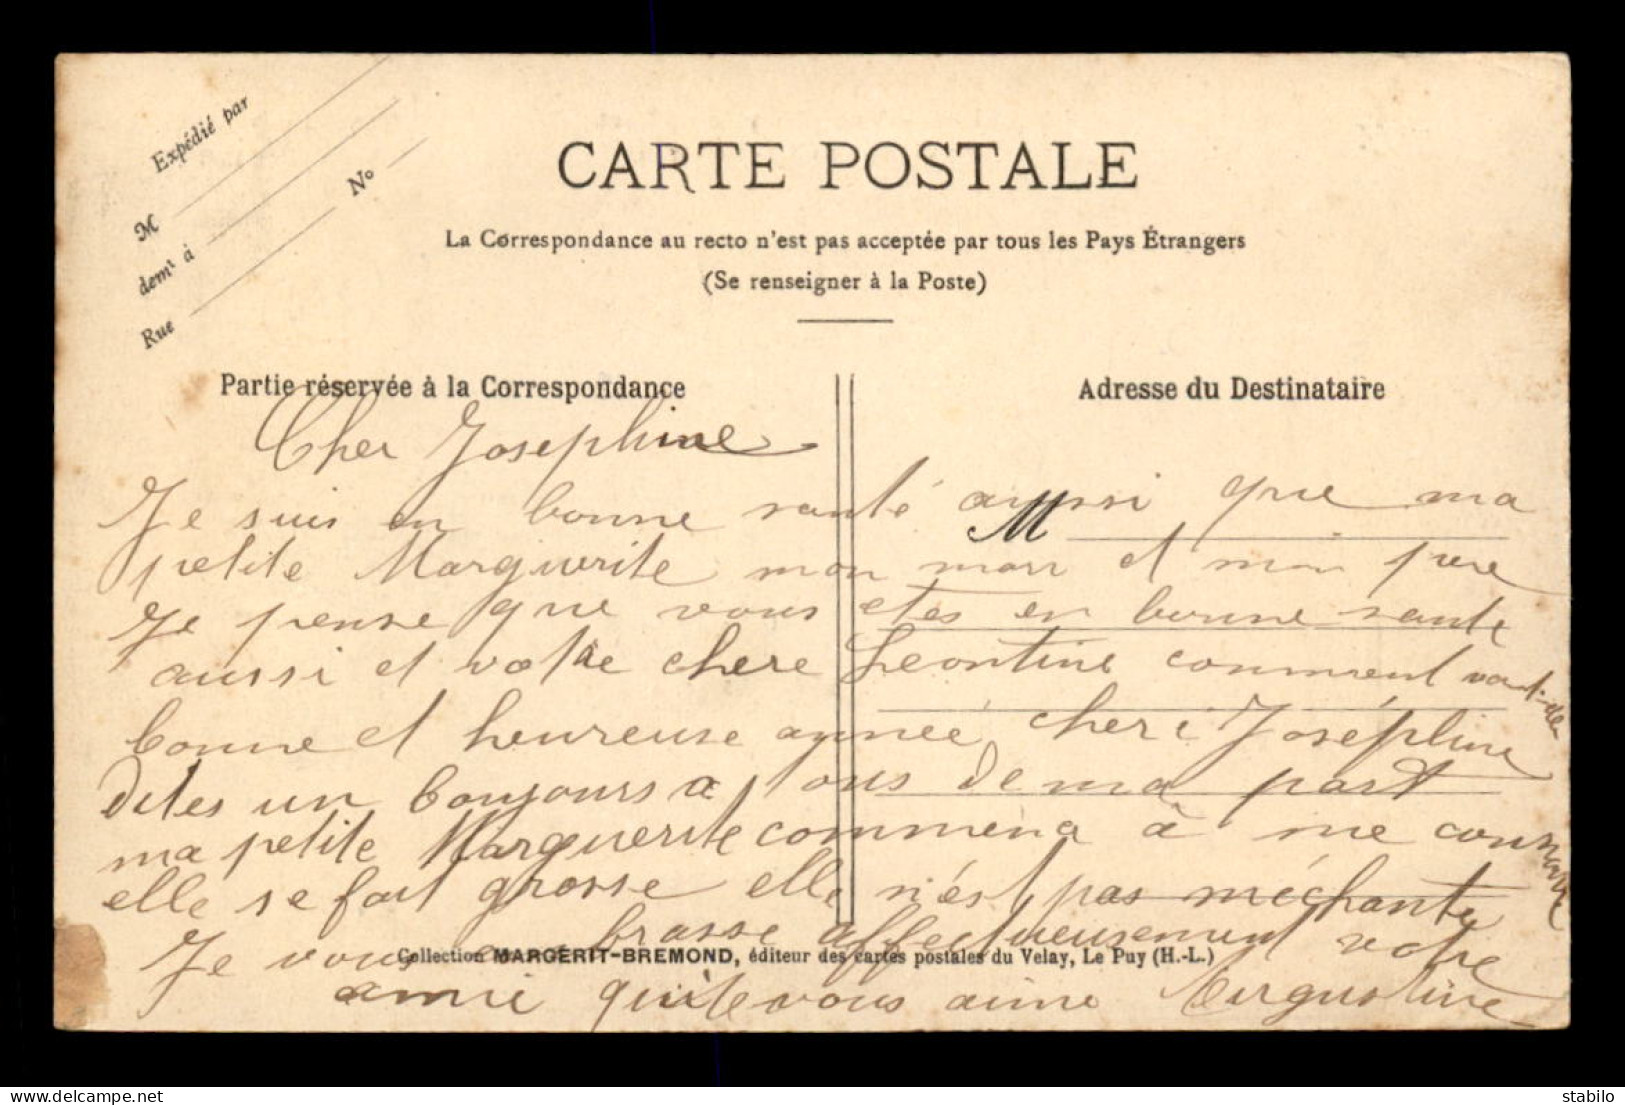 Expédié par
M
demt à
Rue
No
CARTE POSTALE
La Correspondance au recto n'est pas acceptée par tous les Pays Étrangers
(Se renseigner à la Poste)
Partie réservée à la Correspondance
Adresse du Destinataire
M
Cher Josephine
Je suis en bonne santé aussi que ma
petite Marguerite mon mari et mon pere
Je pense que vous etes en bonne sante
aussi et votre chere Leontine comment vont-elle
bonne et heureuse année cheri Joséphine
dites un bonjours a tous de ma part
ma petite Marguerite commena à me connaitre
elle se fait grosse elle n'est pas méchante
Je vous embrasse affectueusement votre
amie qui te vous aime Augustine
Collection MARGERIT-BREMOND, éditeur des cartes postales du Velay, Le Puy (H.-L.)
stabilo